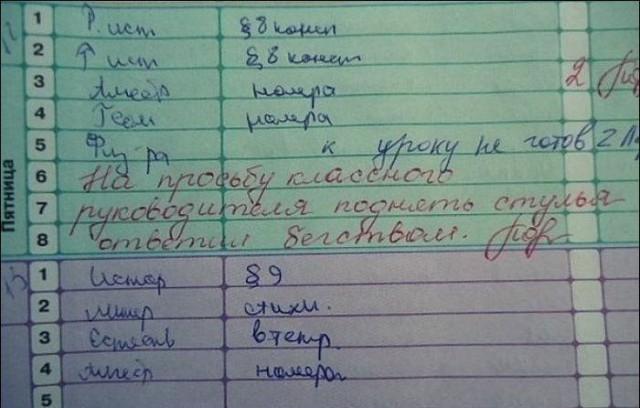 1 Р. ист §8 консп
2 ист §8 конспт
3 Алгебр номера 2
4 Геом номера
5 Физ ра к уроку не готов 2
Пятница
6 На просьбу классного
7 руководителя поднять стулья
8 ответил бегством.
1 Истор §9
2 Литер стихи.
3 Естеств в тетр
4 Алгебр номера
5